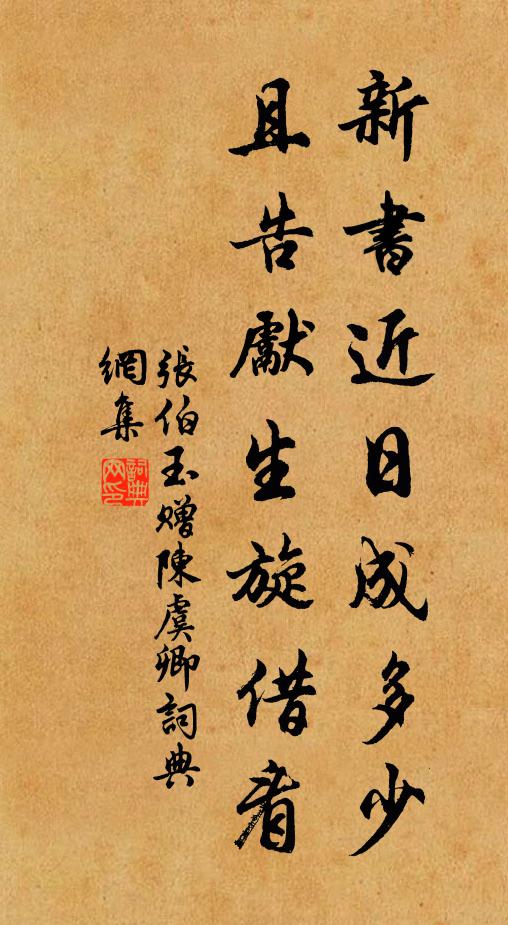 新書近日成多少
且告獻生旋借看
張伯玉贈陳虞卿詞典
網集
詞典
网印